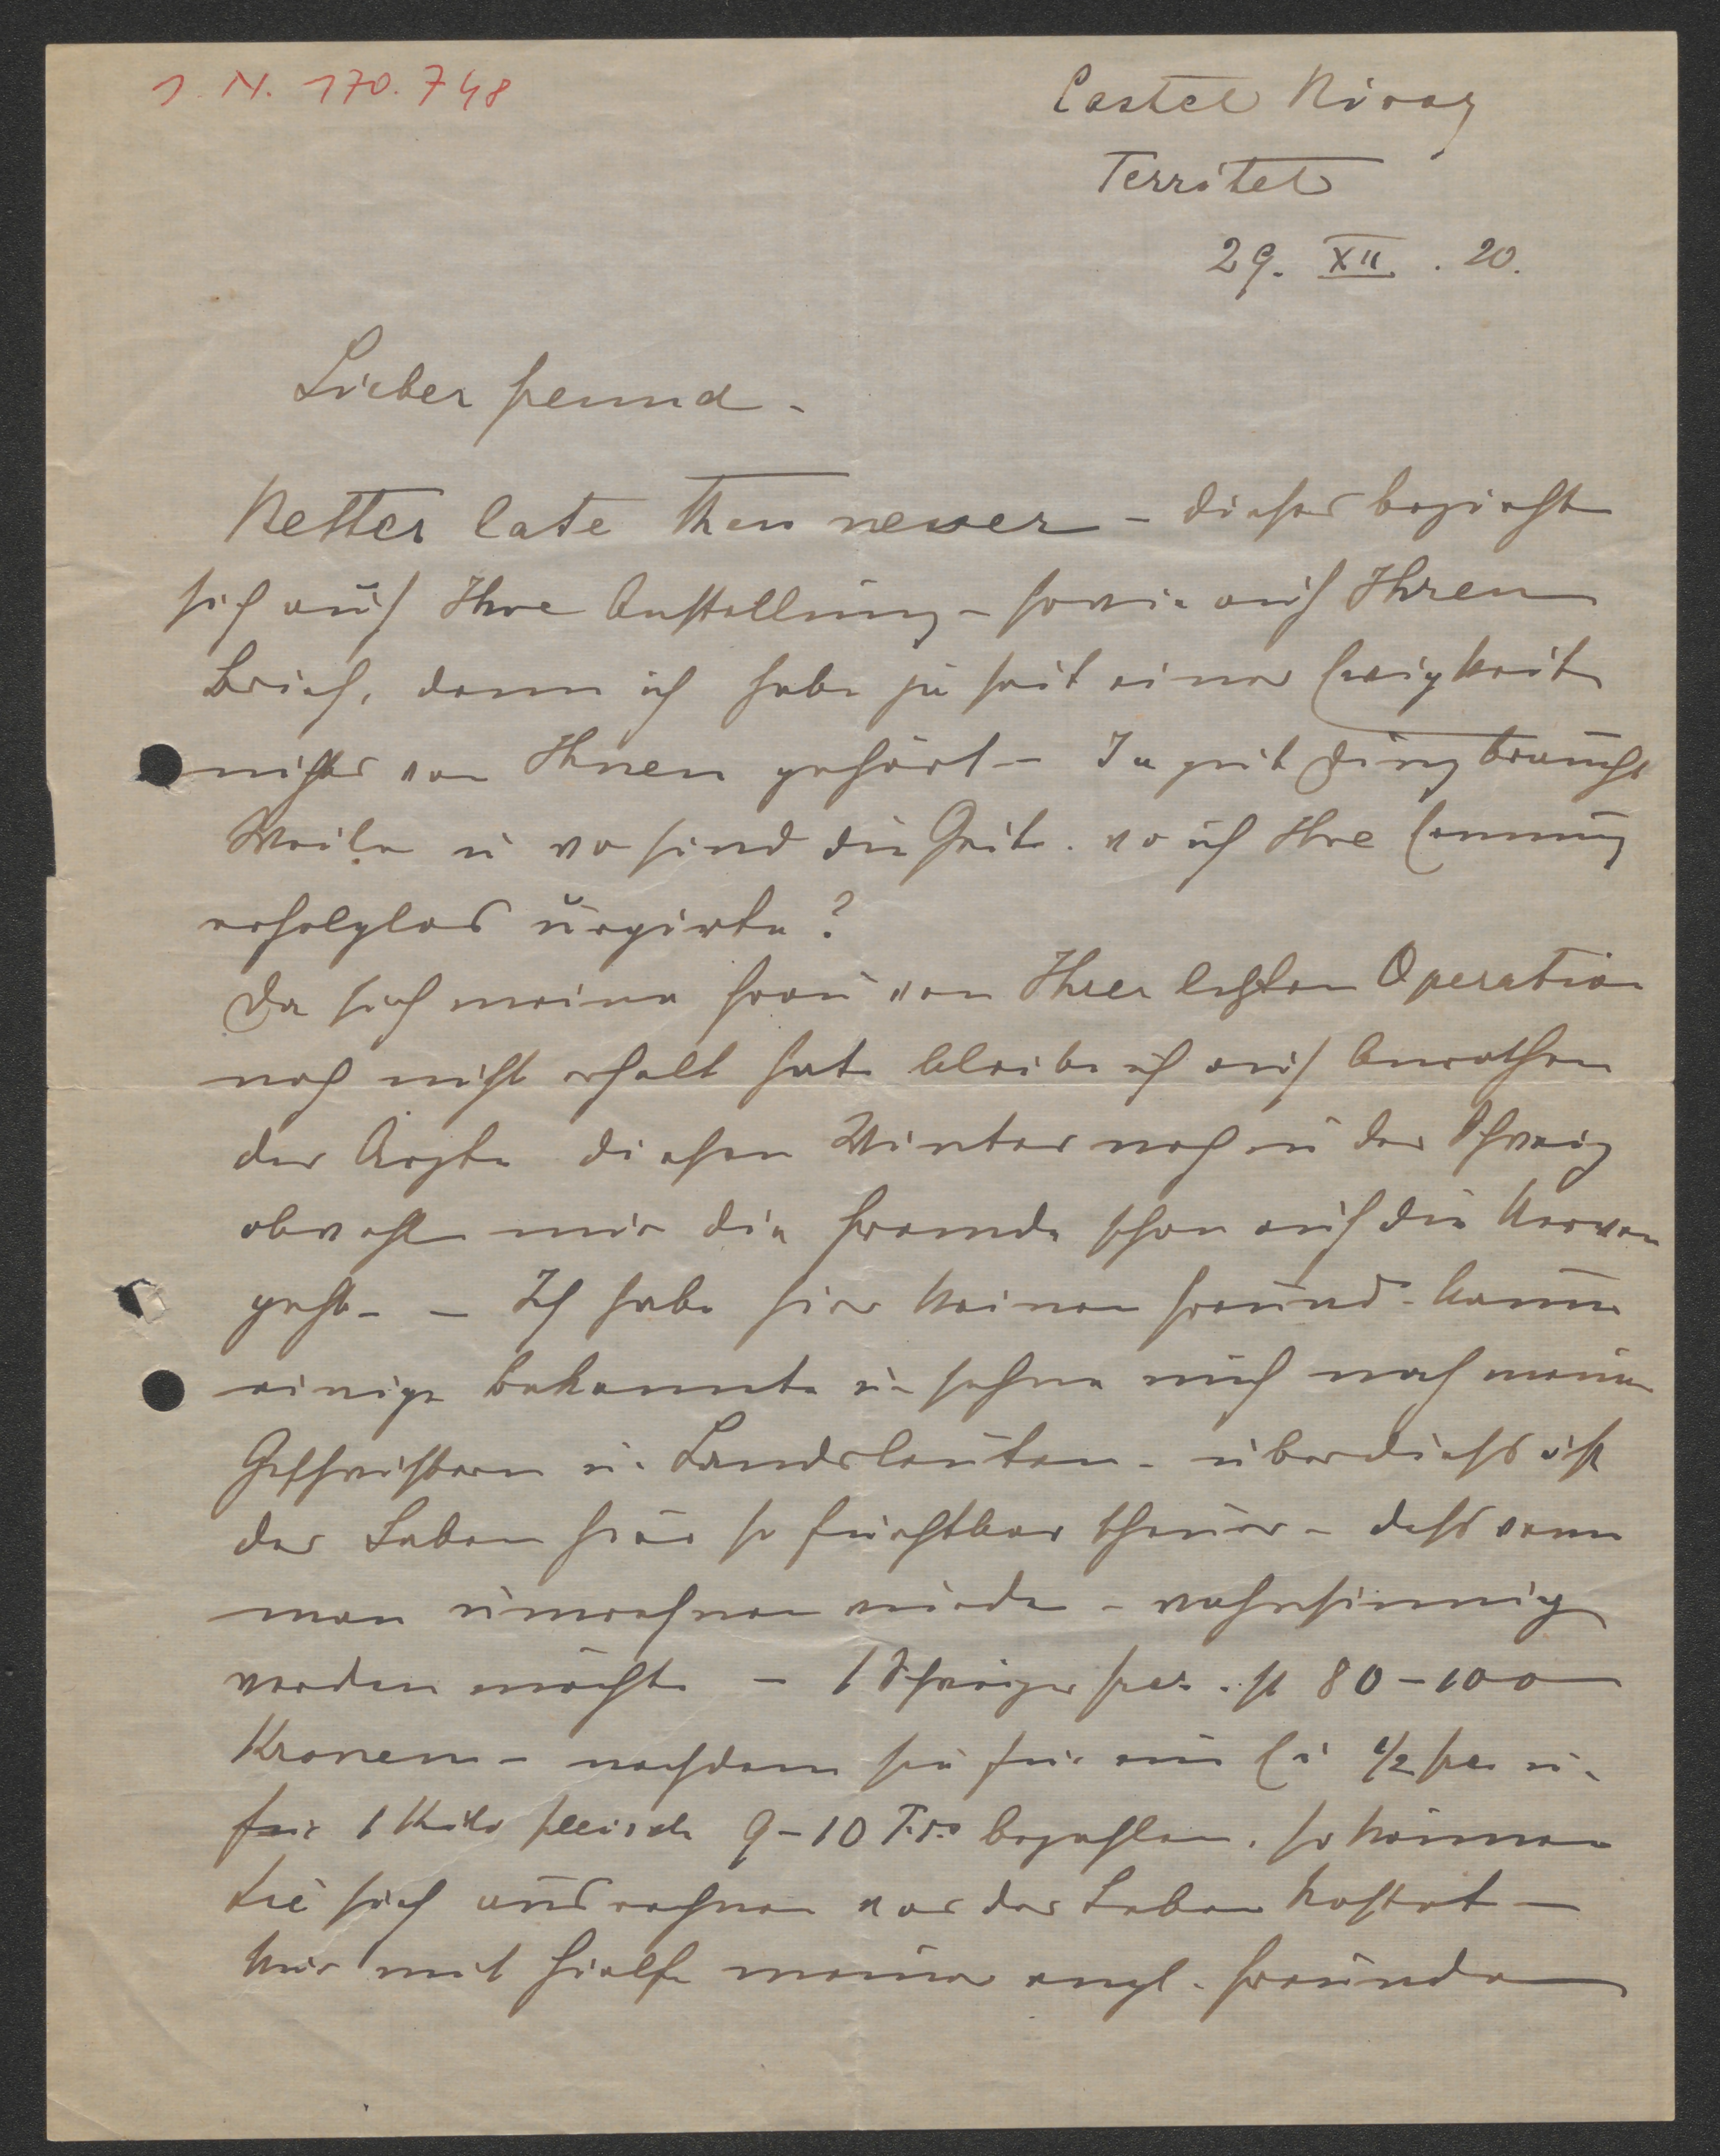 I. N. 170.748
Castel Rivag
Territet
29. XII. 20.
Lieber Freund.
Better late then never - dieses bezieht
sich auf Ihre Anstellung - sowie auf Ihren
Brief, denn ich habe ja seit einer Ewigkeit
nichts von Ihnen gehört - Ja gut Ding braucht
Weile u wo sind die Zeiten wo ich Ihre Ernennung
erfolglos urgirte?
Da sich meine Frau von Ihrer letzten Operation
noch nicht erholt hat bleibe ich auf Anrathen
der Ärzte diesen Winter noch in der Schweiz
obwohl mir die Fremde schon auf die Nerven
geht - - Ich habe hier keinen Freund - kaum
einige Bekannte u. sehne mich nach meinen
Geschwistern u. Landsleuten - überdiess ist
das Leben hier so furchtbar theuer - dass wenn
man umrechnen würde - wahnsinnig
werden möchte - 1 Schweizer frcs. ist 80-100
Kronen - nachdem sie für ein Ei ½ frcs u.
für 1 Kilo Fleisch 9-10 Frcs bezahlen. so können
Sie sich ausrechnen was das Leben kostet -
Nur mit Hielfe meiner engl. Freunde